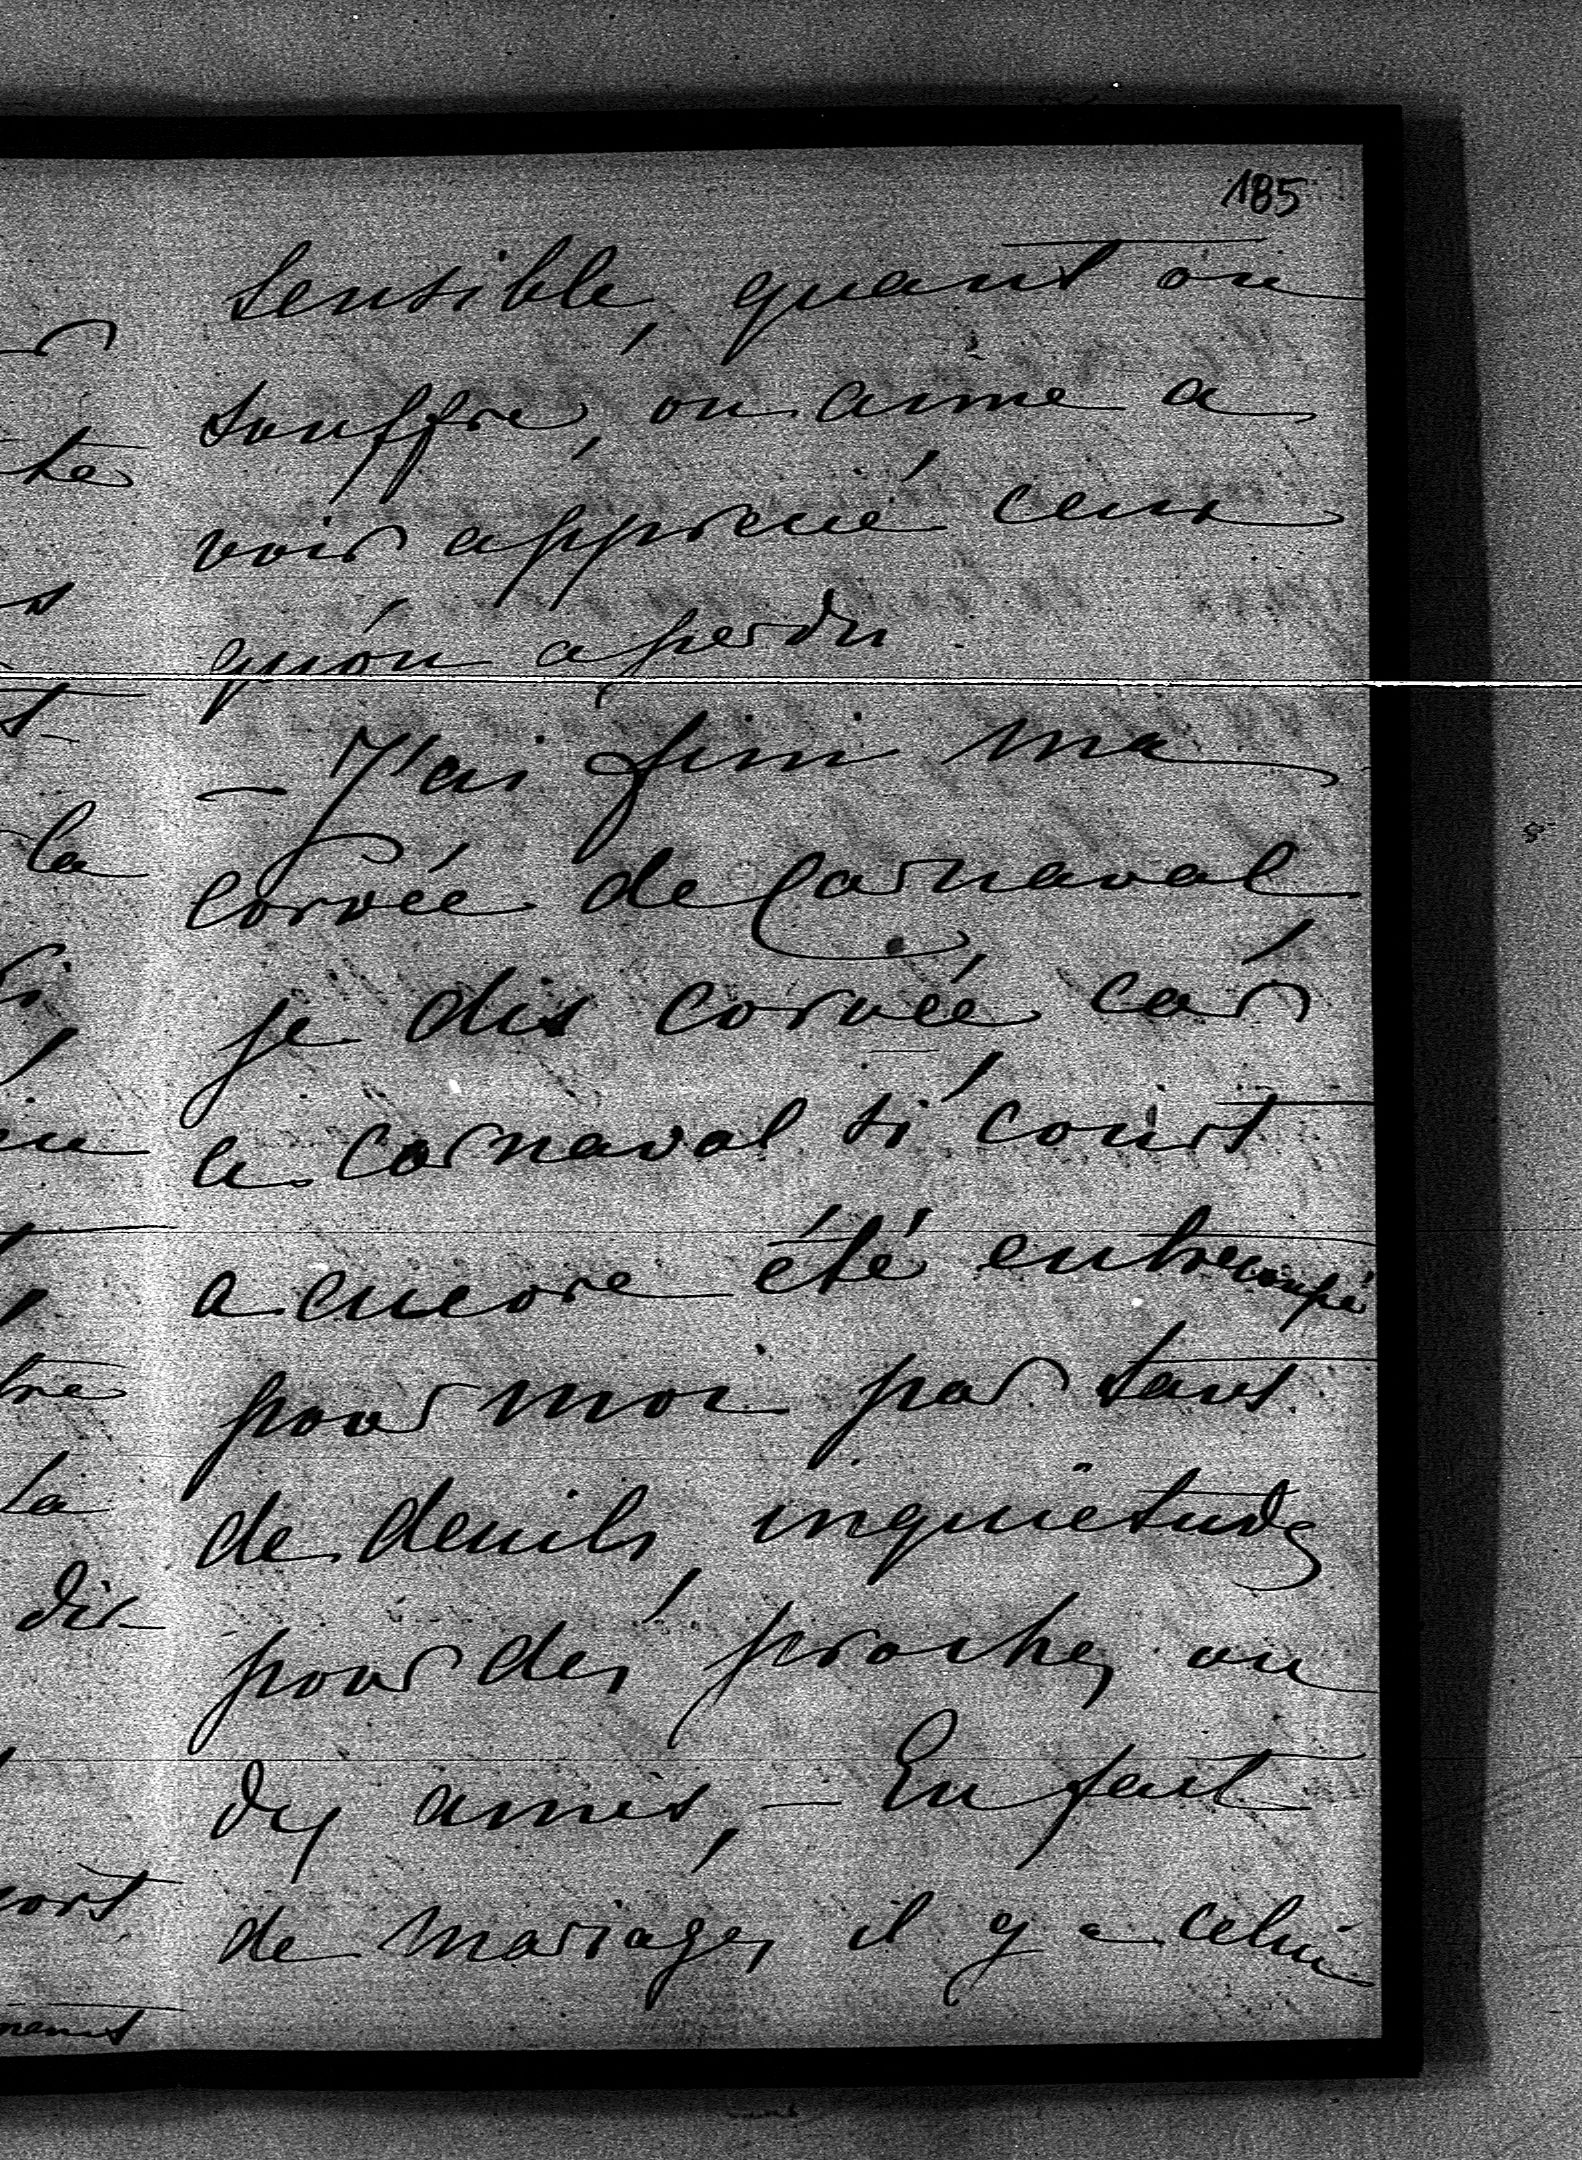 185
sensible, quant on
souffre, on aime a
voir apprecié ceux
qu'on a perdu.
— J'ai fini ma
corvée de Carnaval,
je dis corvée car
le carnaval si court
a encore été entrecoupé
pour moi par tant
de deuils, inquietudes
pour des proches ou
des amis, — En fait
de mariages il y a celui
la